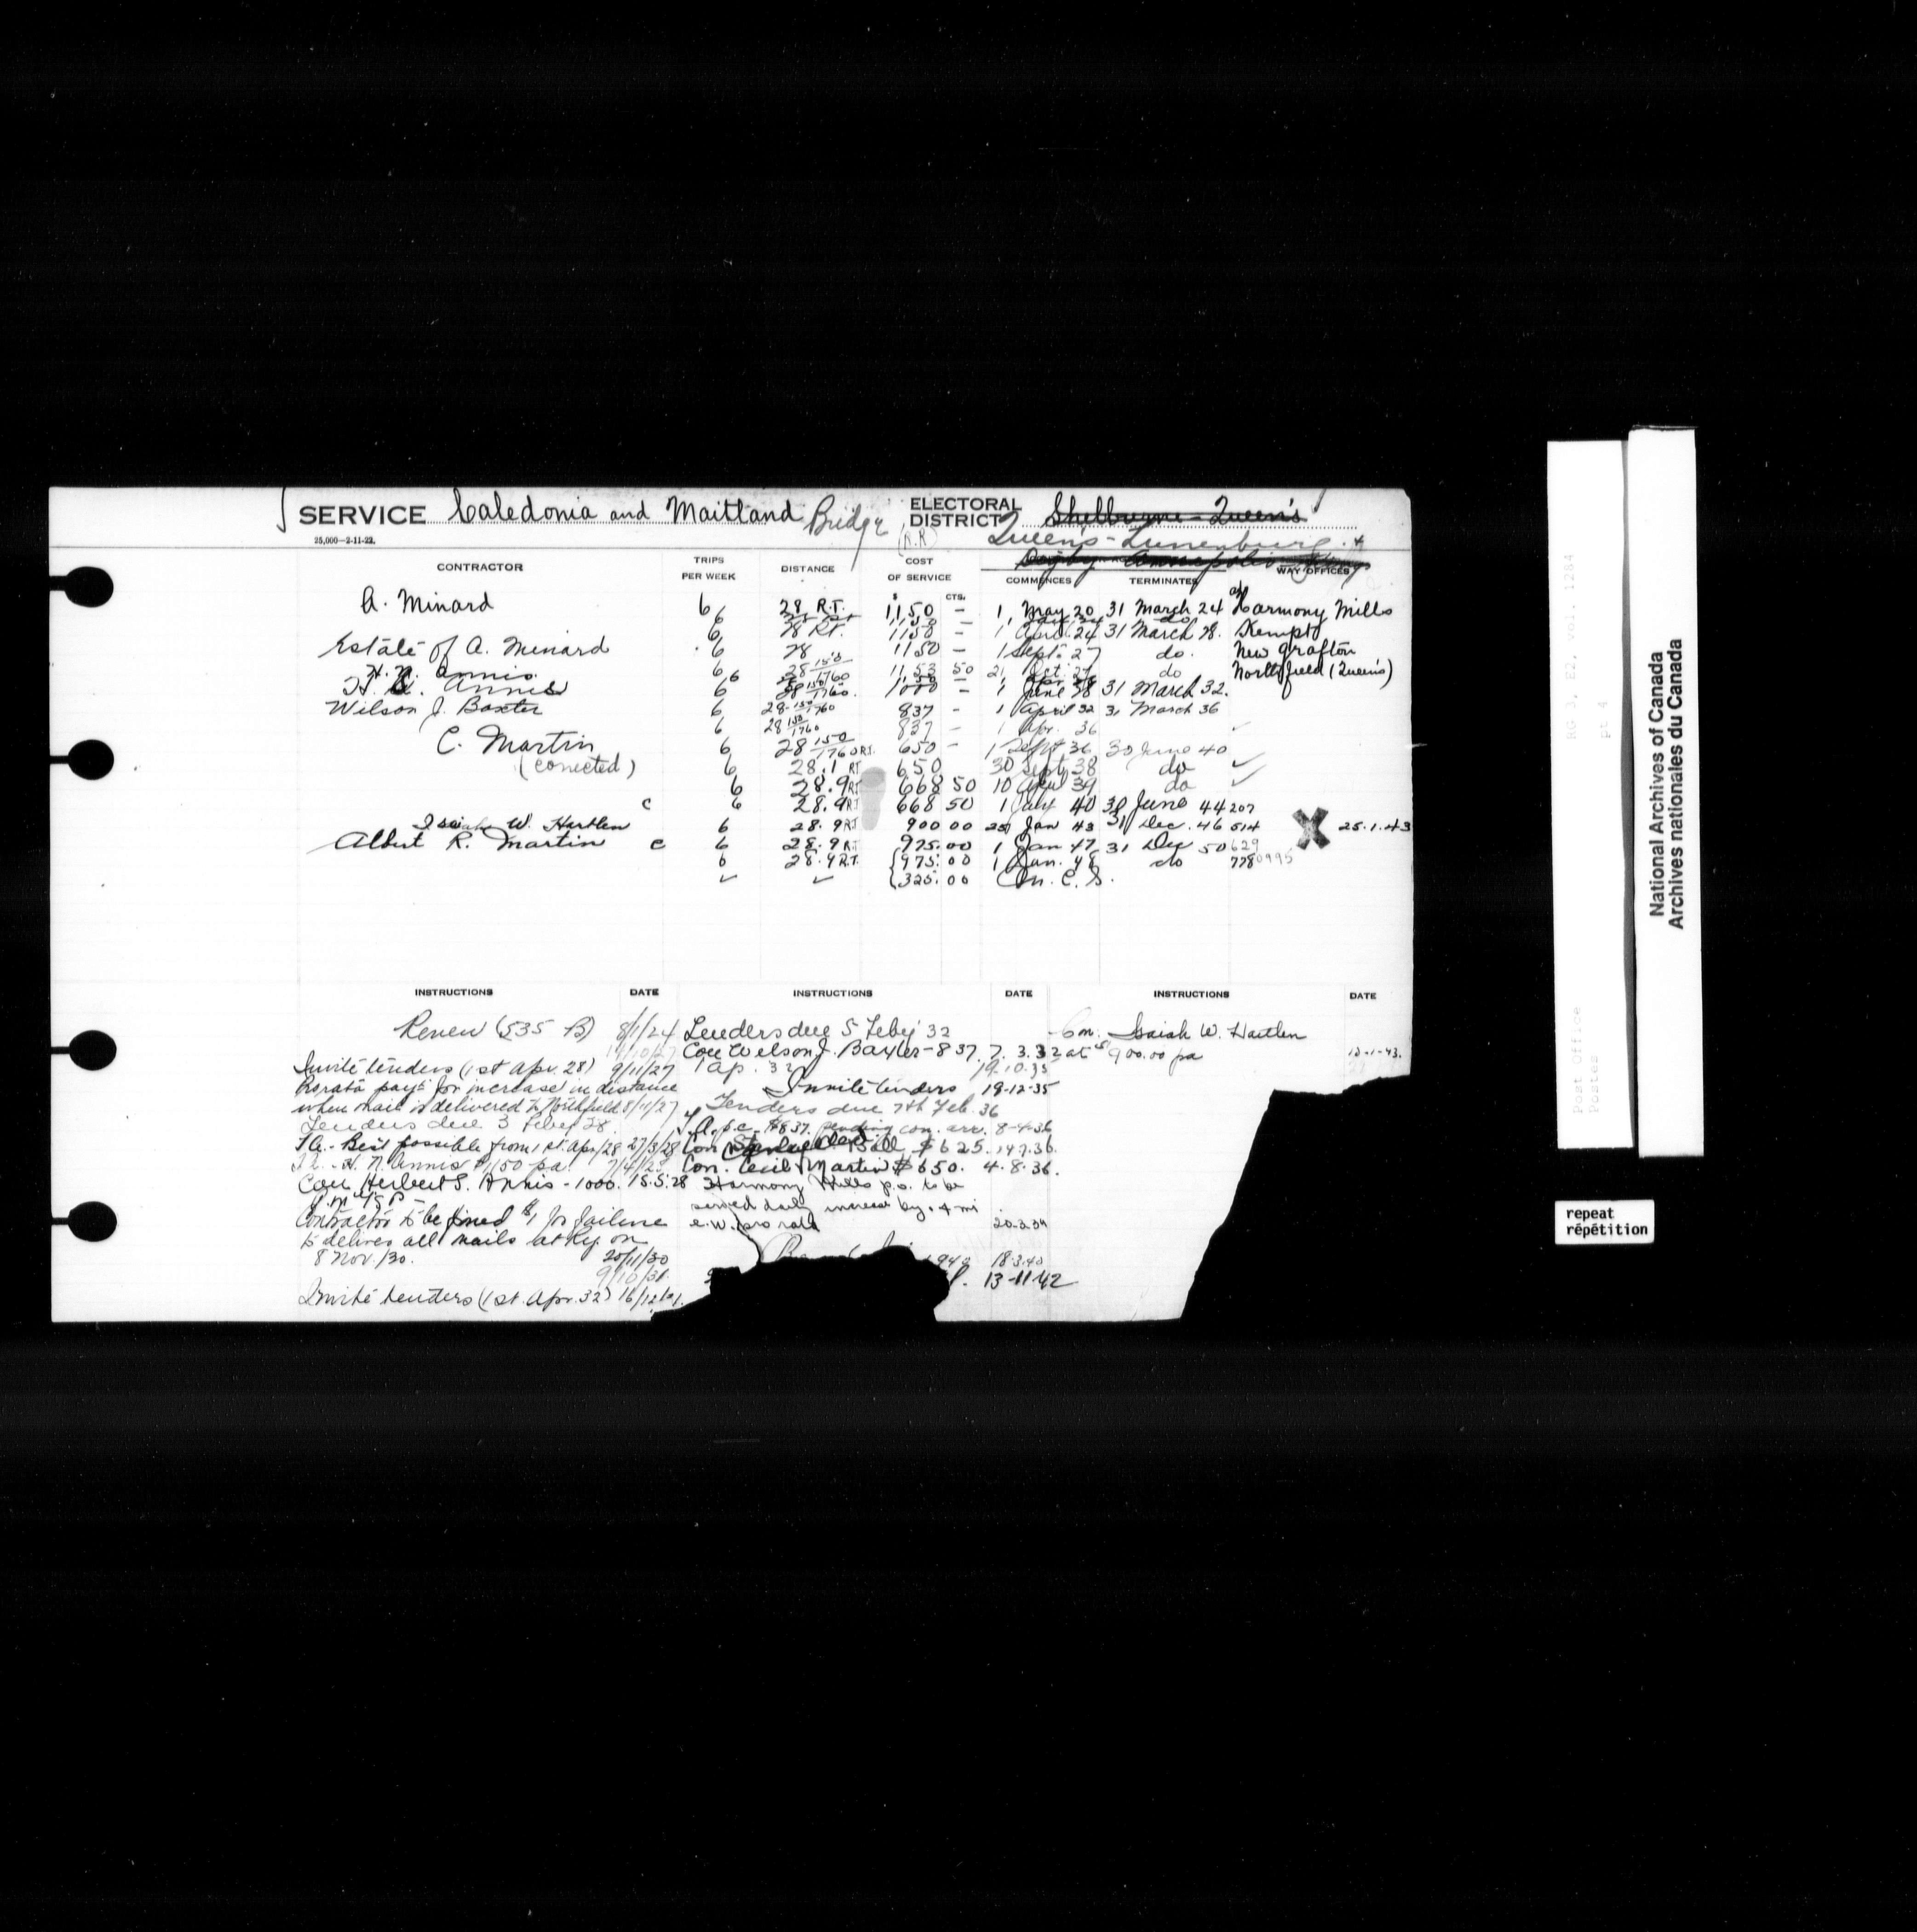 SERVICE Caledonia and Maitland Bridge (R.R) ELECTORAL DISTRICT Shelburne - Queen's
Queen's - Lunenburg +
25,000—2-11-22.
CONTRACTOR TRIPS PER WEEK DISTANCE COST OF SERVICE COMMENCES TERMINATES WAY OFFICES
$ CTS.
A. Minard 6 28 R.T. 1150 — 1 May 20 31 March 24 Harmony Mills
6 1150 — do
6 28 R.T. 1150 — 1 April 24 31 March 28. Kempt
Estate of A. Minard 6 28 1150 — 1 Sept. 27 do. New Grafton
H. N. Annis 6 28 150/1760 1153 50 21 Oct. 27 do Northfield (Queen's)
H. S. Annis 6 28 150/1760 1000 — 1 June 28 31 March 32.
Wilson J. Baxter 6 28 150/1760 837 — 1 April 32 31 March 36
6 28 150/1760 837 — 1 Apr. 36
C. Martin 6 28 150/1760 RT. 650 — 1 Sept 36 30 June 40
(corrected) 6 28.1 RT 650 30 Sept 38 do
6 28.9 RT 668 50 10 April 39 do
c 6 28.9 RT 668 50 1 July 40 30 June 44 207
Isaiah W. Hartlen 6 28.9 RT 900 00 25 Jan 43 31 Dec. 46 514 X 25.1.43
Albert R. Martin c 6 28.9 RT 975.00 1 Jan 47 31 Dec 50 629
6 28.9 R.T. 975.00 1 Jan. 48 do 778 0995
325.00 M.C.S.
INSTRUCTIONS DATE INSTRUCTIONS DATE INSTRUCTIONS DATE
Renew (535 B) 8/1/24
Invite tenders (1st Apr. 28) 9/11/27
Prorata payt for increase in distance
when mail is delivered to Northfield 8/11/27
Tenders due 3 Feby 28
T.A. - Best possible from 1st. Apr/28 27/3/28
T.A. - H. N. Annis $1150 pa.
Con Herbert S. Annis - 1000. 15.5.28
Contractor to be fined $1 for failure
to deliver all mails at Ry. on
8 Nov./30. 20/11/30
9/10/31.
Invite tenders (1st. Apr. 32) 16/12/31.
Tenders due 5 Feby 32
Con Wilson J. Baxter - 837. 7.3.32
1 Ap. 32 19.10.35
Invite tenders 19-12-35
Tenders due 7th Feb. 36
T.A. p.c. $837. pending con. arr. 8-4-36
Con Ball $625. 14.7.36.
Con. Cecil Martin $650. 4.8.36.
Harmony Mills p.o. to be
served daily increase by .4 mi
e.w. pro rata 20.3.39
1940 18.3.40
13-11-42
Con. Isaiah W. Hartlen
at $900.00 pa 12-1-43.
RG 3, E2, vol. 1284
pt 4
Post Office
Postes
National Archives of Canada
Archives nationales du Canada
repeat
répétition